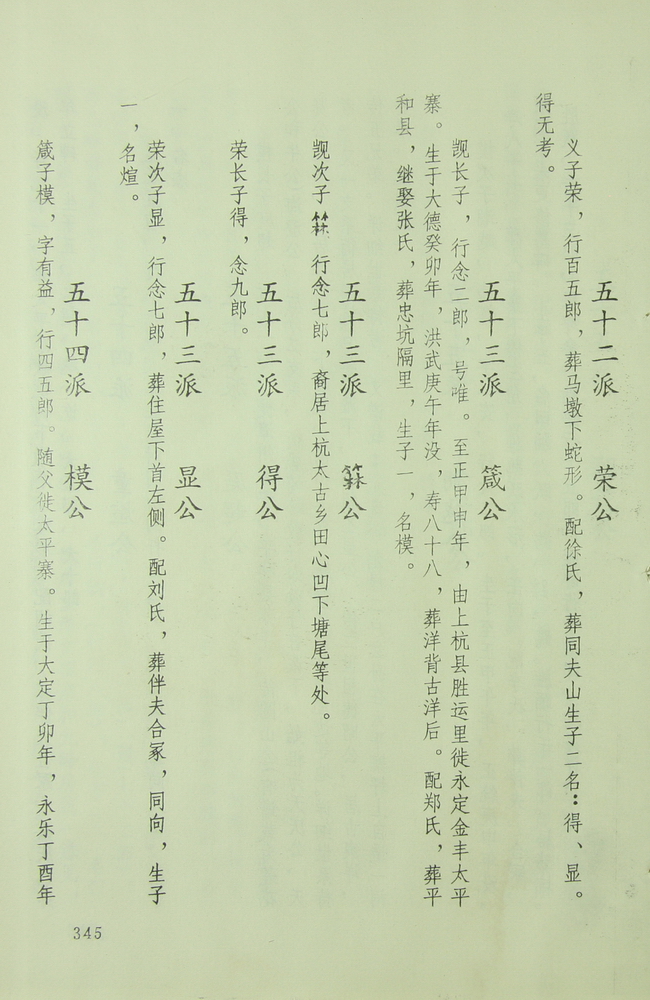 五十二派　荣公
义子荣，行百五郎，葬马墩下蛇形。配徐氏，葬同夫山生子二名：得、显。
得无考。
五十三派　箴公
觊长子，行念二郎，号唯。至正甲申年，由上杭县胜运里徙永定金丰太平
寨。生于大德癸卯年，洪武庚午年没，寿八十八，葬洋背古洋后。配郑氏，葬平
和县，继娶张氏，葬忠坑隔里，生子一，名模。
五十三派　箖公
觊次子箖行念七郎，裔居上杭太古乡田心凹下塘尾等处。
五十三派　得公
荣长子得，念九郎。
五十三派　显公
荣次子显，行念七郎，葬住屋下首左侧。配刘氏，葬伴夫合冢，同向，生子
一，名煊。
五十四派　模公
箴子模，字有益，行四五郎。随父徙太平寨。生于大定丁卯年，永乐丁酉年
345